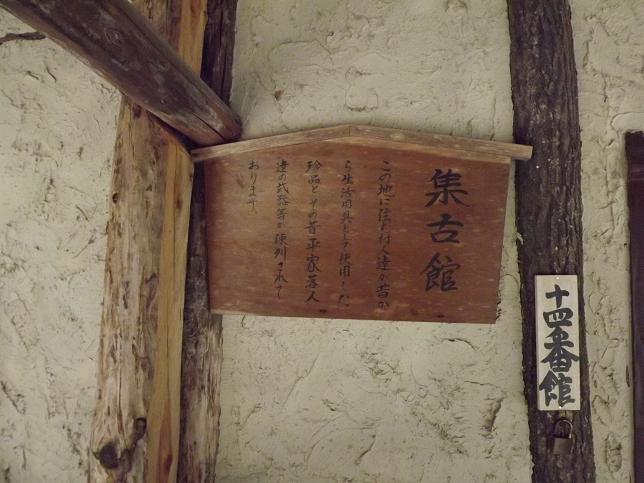 集古館
この地に住む村人達が昔か
ら生活用具として使用した
珍品とその昔平家落人
達の武器等が陳列されて
おります
十四番館